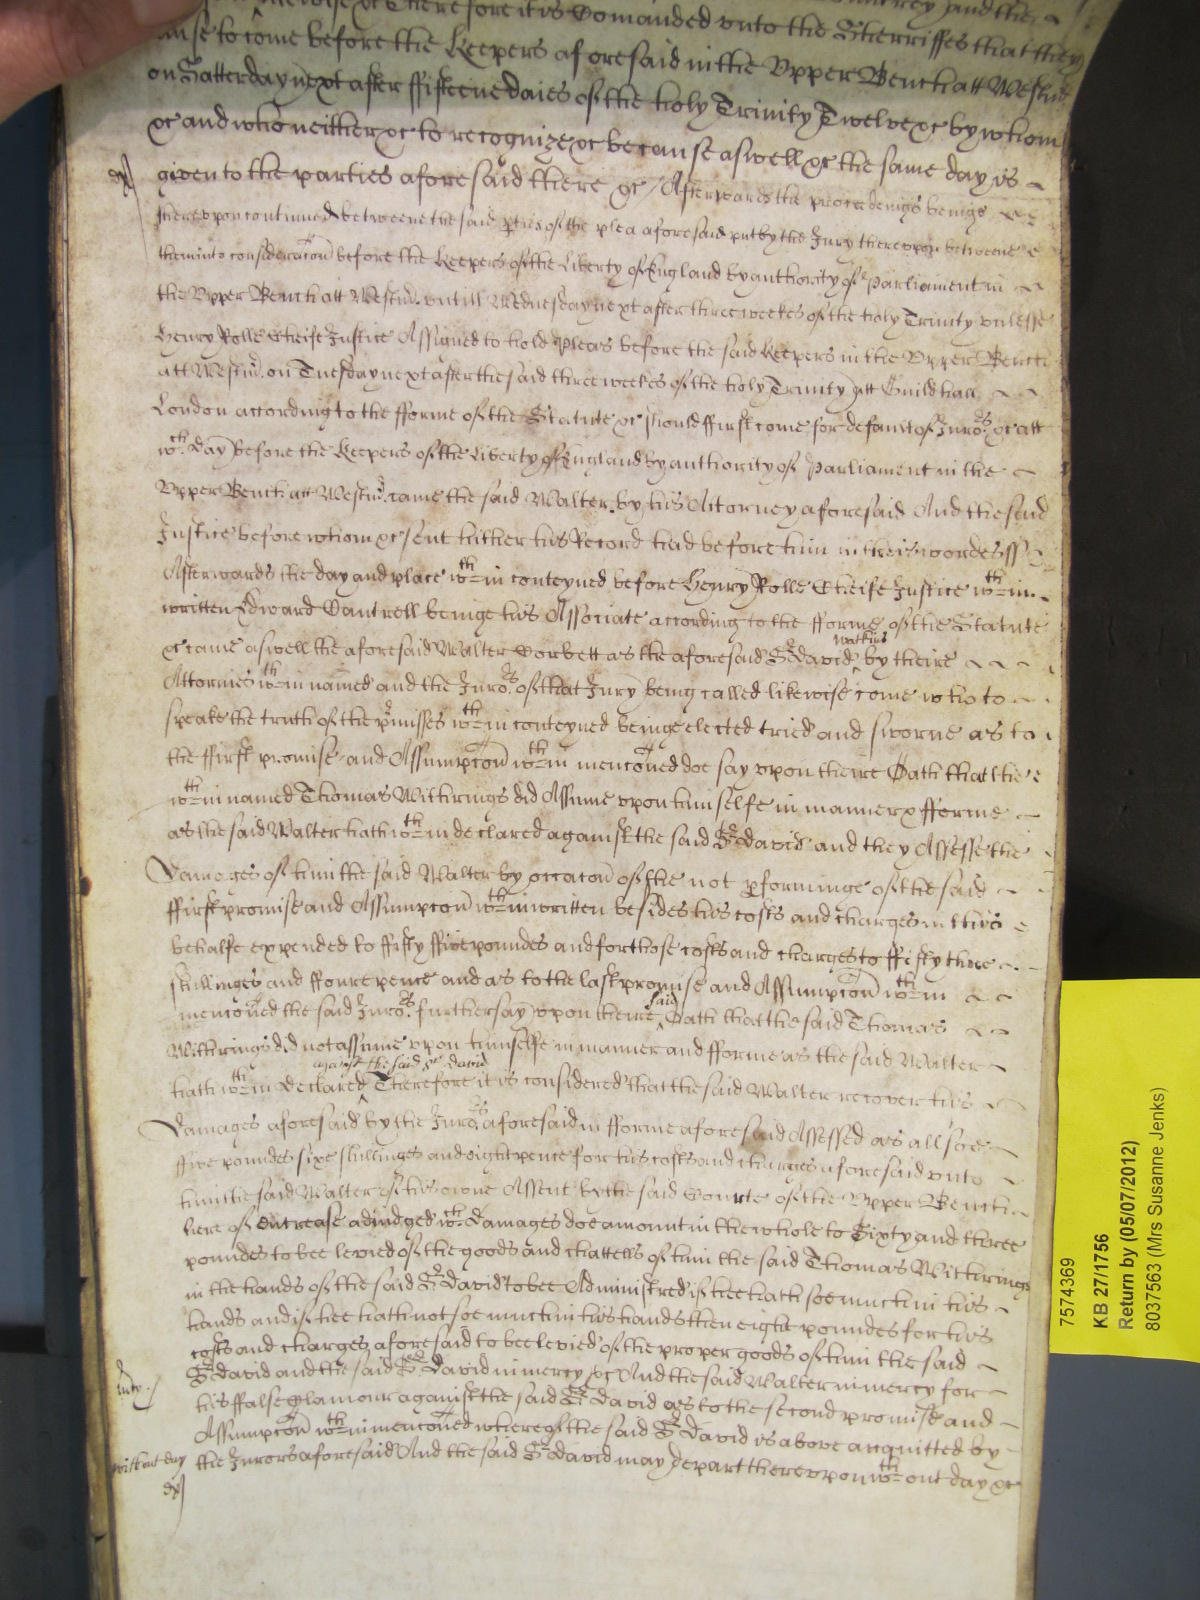 likewise &c Therefore it is Comanded vnto the Sherriffes that they
cause to come before the Keepers aforesaid in the Vpper Bench att Westm̄
on Satterday next after fifteene daies of the holy Trinity Twelve &c by whom
&c and who neither &c to recognize &c because aswell &c the same day is
given to the parties aforesaid there &c / Afterwards the proceedeings beinge
therevpon continued betweene the said pties of the plea aforesaid put by the Jury therevpon betweene
them into consideracon before the Keepers of the Liberty of England by authority of Parliament in
the Vpper Bench att Westm̄. vntill Wednesday next after three weekes of the holy Trinity vnlesse
Henry Rolle Cheife Justice Assigned to hold pleas before the said Keepers in the Vpper Bench
att Westm̄. on Tuesday next after the said three weekes of the holy Trinity att Guildhall
London according to the fforme of the Statute &c should ffirst come for default of Juro.rs &c att
wch. day before the Keepers of the Liberty of England by authority of Parliament in the
Vpper Bench att Westm̄. came the said Walter by his Attorney aforesaid And the said
Justice before whom &c sent hither his Record had before him in theis wordes ss
Afterwards the day and place wthin conteyned before Henry Rolle Cheife Justice wthin
written Edward Cantrell beinge his Associate according to the fforme of the Statute
&c came aswell the aforesaid Walter Corbett as the aforesaid Sr David watkins by theire
Attornies wthin named and the Juro.rs of that Jury being called likewise come who to
speake the truth of the pmisses wthin conteyned beinge elected tried and sworne as to
the ffirst promise and Assumpcon wthin menconed doe say vpon theire Oath that the
wthin named Thomas Witherings did Assume vpon himselfe in manner & fforme
as the said Walter hath wthin declared against the said Sr David and they Assesse the
Damages of him the said Walter by occacon of the not pforminge of the said
ffirst promise and Assumpcon wthin written besides his costs and charges in this
behalfe expended to ffifty ffive poundes and for those costs and charges to ffifty three
shillinges and ffoure pence and as to the last promise and Assumpcon wthin
menconed the said Juro.rs further say vpon theire said Oath that the said Thomas
Witherings did not assume vpon himselfe in manner and fforme as the said Walter
hath wthin declared against the said Sr David Therefore it is considered that the said Walter recover his
Damages aforesaid by the Juro.rs aforesaid in fforme aforesaid Assessed as alsoe
ffive poundes sixe shillinges and eight pence for his costs and charges aforesaid vnto
him the said Walter of his owne Assent by the said Courte of the Vpper Bench
here of encrease adiudged wch. damages doe amount in the whole to Sixty and three
poundes to bee levied of the goods and chattells of him the said Thomas Witherings
in the hands of the said Sr David to bee Administred if hee hath soe much in his
hands and if hee hath not soe much in his hands then eight poundes for his
costs and charges aforesaid to bee levied of the proper goods of him the said
Sr David and the said Sr David in mercy &c And the said Walter in mercy for
his false glamour against the said Sr David as to the second promise and
Assumpcon wthin menconed whereof the said Sr David is above acquitted by
without day the Jurors aforesaid And the said Sr David may depart therevpon wthout day &c
7574369
KB 27/1756
Return by (05/07/2012)
8037563 (Mrs Susanne Jenks)